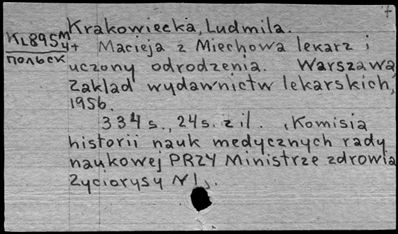 Krakowiecka, Ludmila.
KL895M
4+ Macieja z Miechowa lekarz i
польск
uczony odrodzenia. Warszawa
Zaklad wydawnictw lekarskich,
1956.
334 s., 24s. z il. , Komisia
historii nauk medycznych rady
naukowej PRZY Ministrze zdrowia
Zyciorysy N 1,.